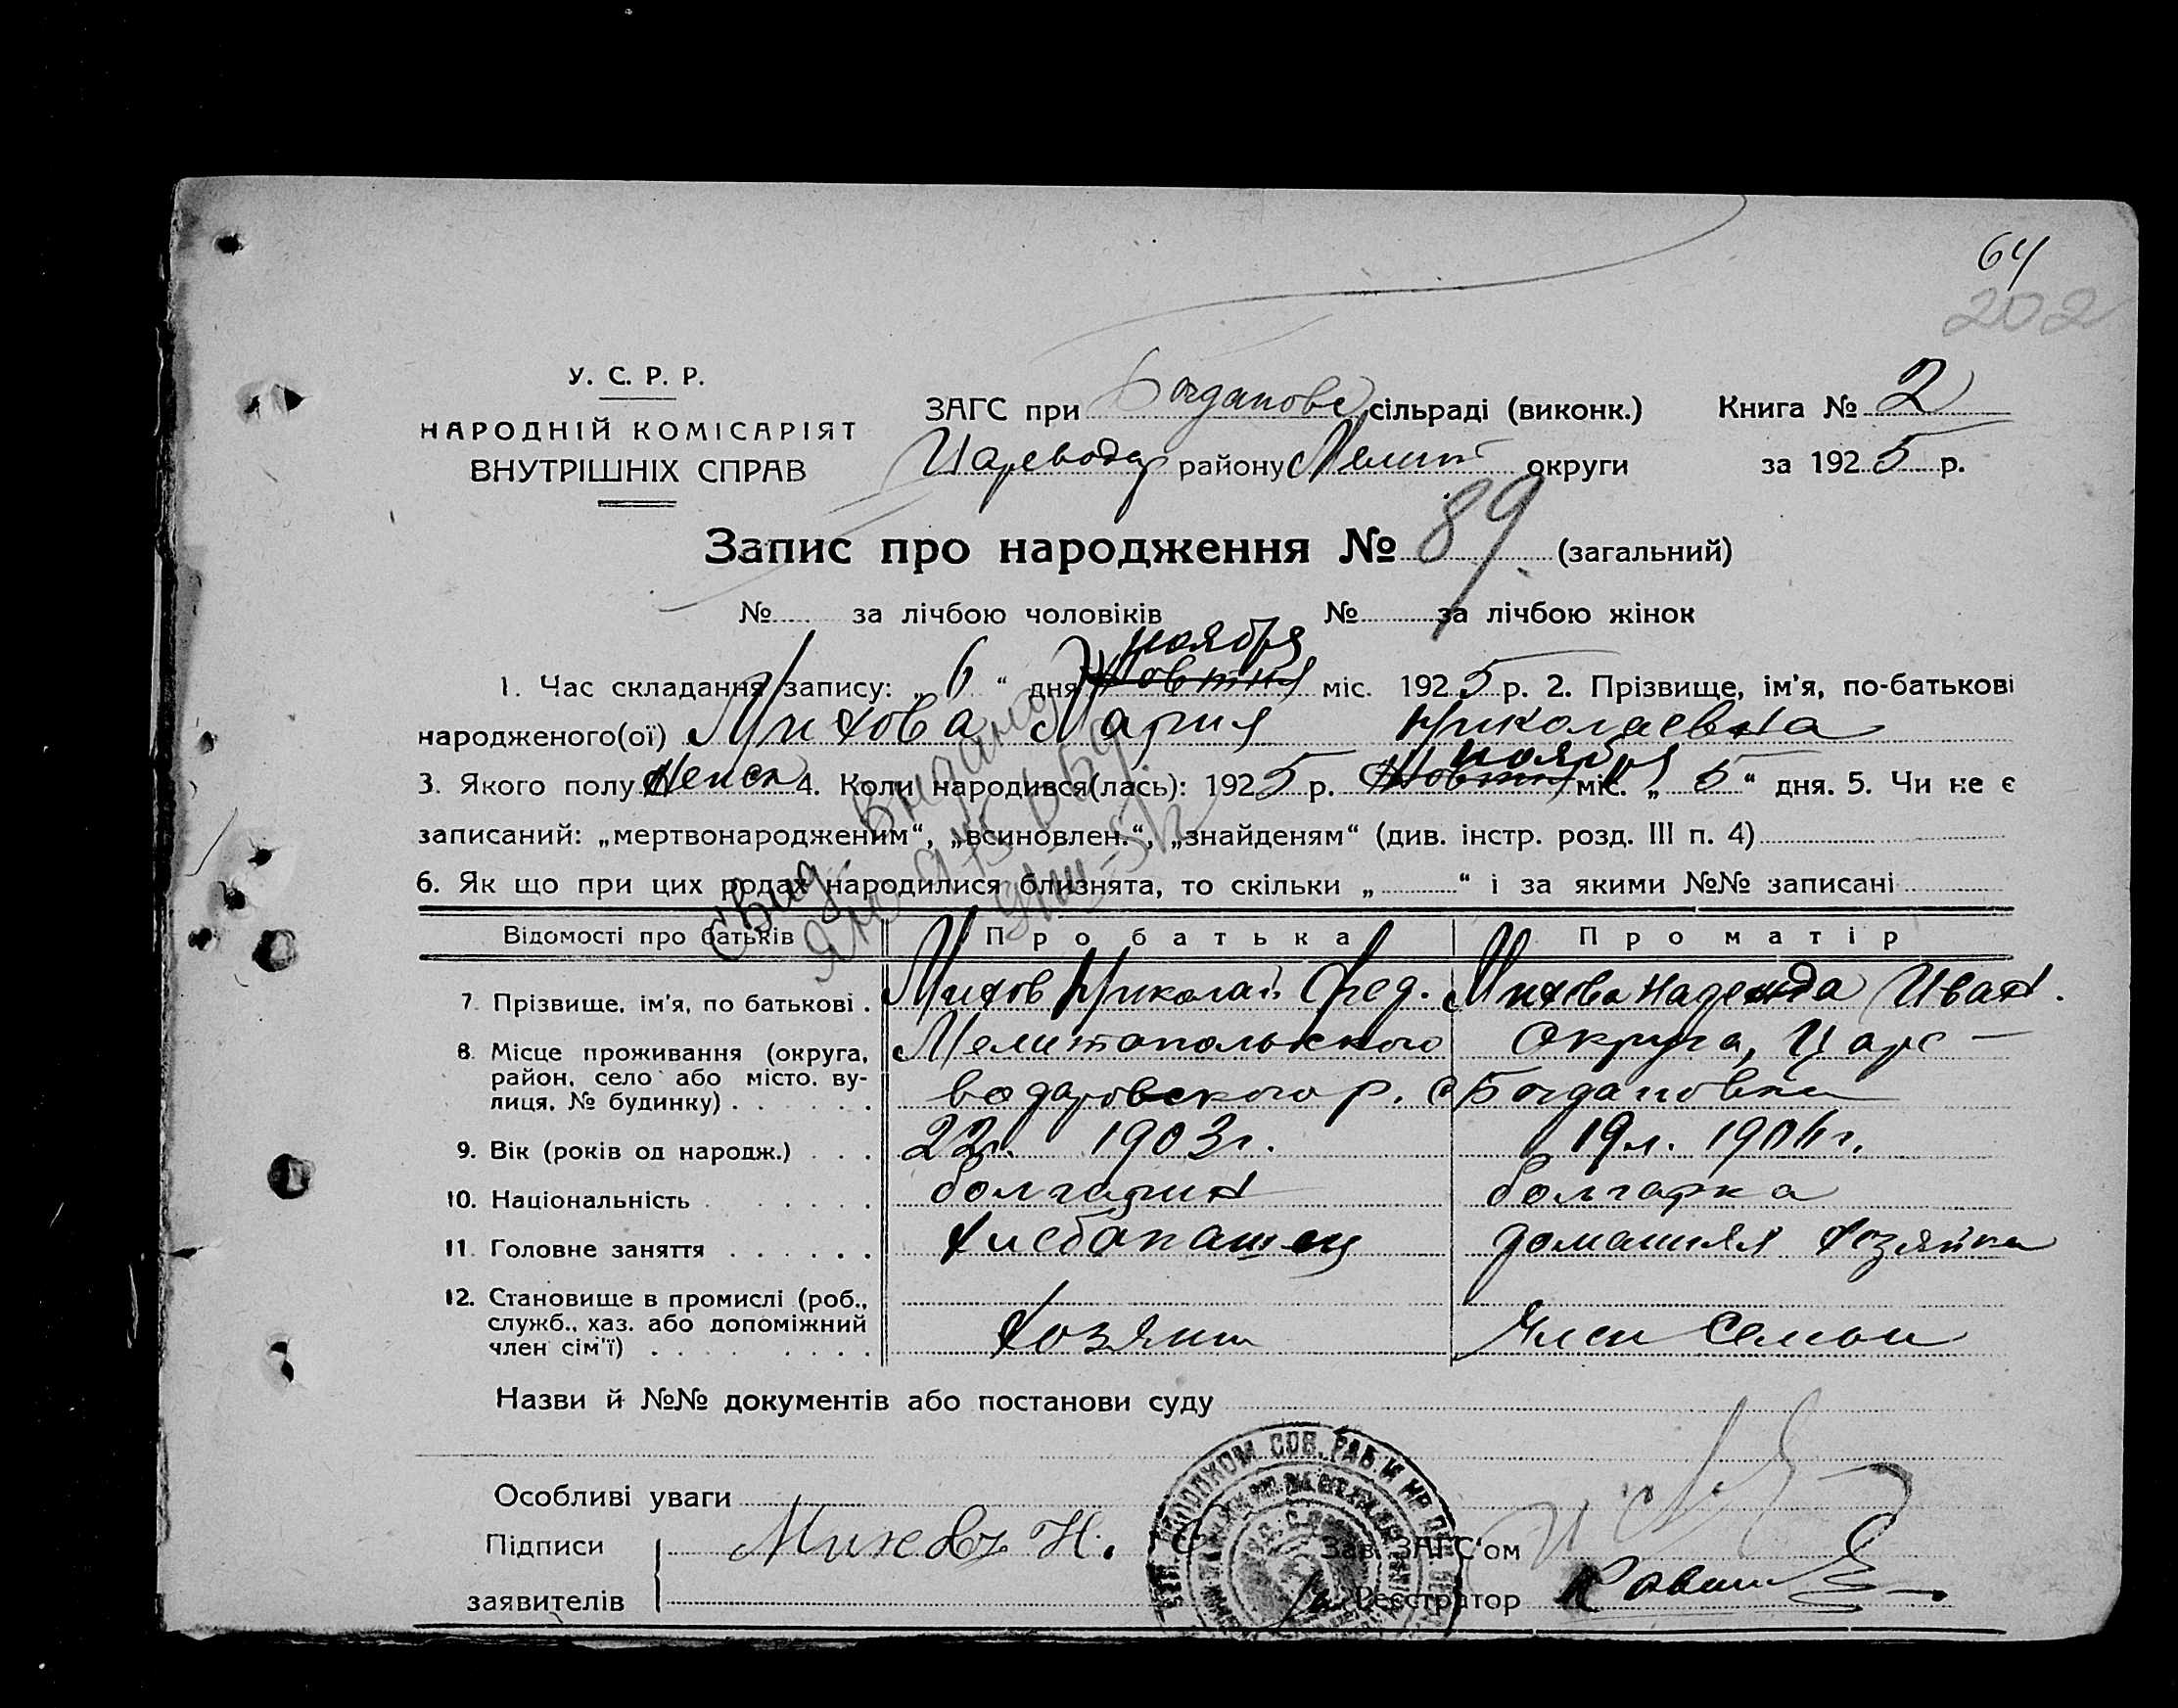 64
202
У. С. Р. Р.
НАРОДНІЙ КОМІСАРІЯТ
ВНУТРІШНІХ СПРАВ
ЗАГС при Богданове сільраді (виконк.) Книга № 2
Царевода району Мелит округи за 1925 р.
Запис про народження № 89 (загальний)
№ за лічбою чоловіків № за лічбою жінок
ноября
1. Час складання запису: „ 6 “ дня Жовтня міс. 1925 р. 2. Прізвище, ім’я, по-батькові
народженого(ої) Михова Мария Николаевна
ноября
3. Якого полу Женск 4. Коли народився(лась): 1925 р. Жовтня міс. „ 5 “ дня. 5. Чи не є
записаний: „мертвонародженим“, „всиновлен.“, „знайденям“ (див. інстр. розд. III п. 4)
6. Як що при цих родах народилися близнята, то скільки „ “ і за якими №№ записані
Свид. выдано
Відомості про батьків Про батька Про матір
7. Прізвище, ім’я, по батькові . Михов Николай Фед. Михова Надежда Иван.
8. Місце проживання (округа, Мелитопольского Округа, Царе-
район, село або місто, ву-
лиця, № будинку) . . . . . . водаровского р. с Богдановки
9. Вік (років од народж.) . . . 22г. 1903г. 19л. 1906г.
10. Національність . . . . . . болгарин болгарка
11. Головне заняття . . . . . . хлебопашец домашняя хозяйка
12. Становище в промислі (роб.,
служб., хаз. або допоміжний
член сім’ї) . . . . . . . . хозяин Член Семьи
Назви й №№ документів або постанови суду
Особливі уваги
Підписи
заявителів
Миховъ Н.
Зав. ЗАГС‘ом
Реєстратор